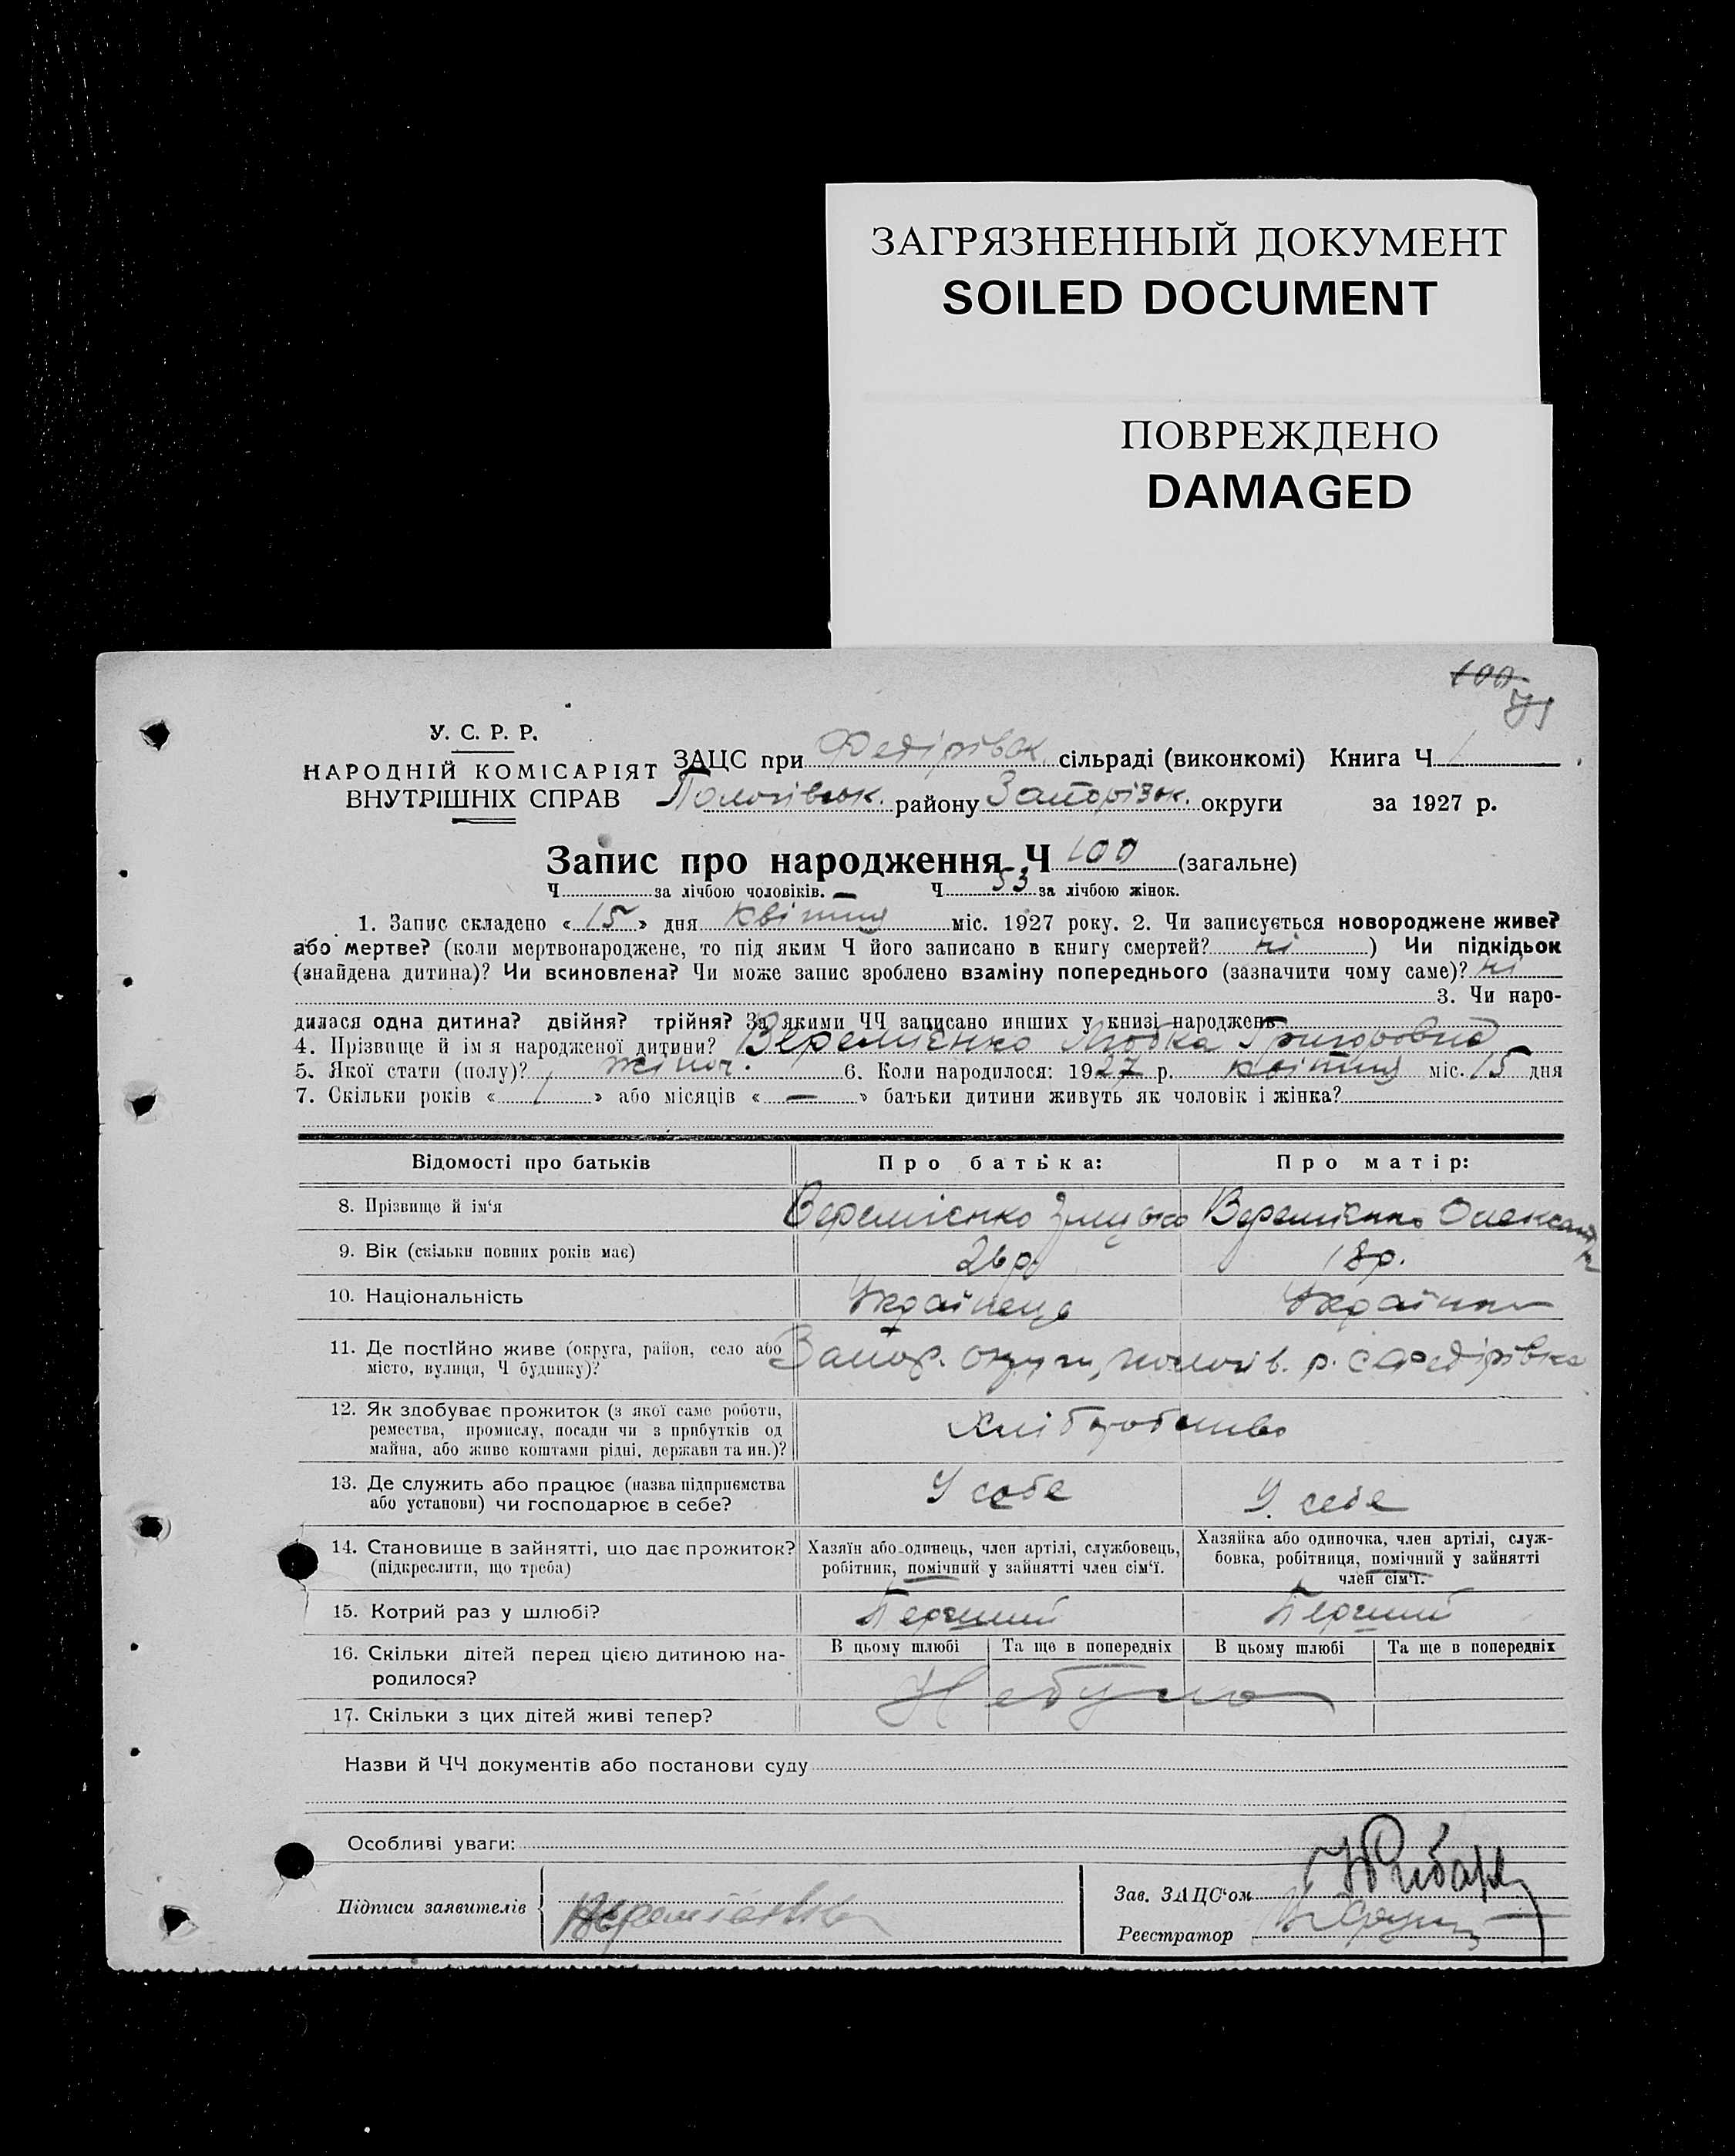 ЗАГРЯЗНЕННЫЙ ДОКУМЕНТ
SOILED DOCUMENT
ПОВРЕЖДЕНО
DAMAGED
100
У. С. Р. Р.
НАРОДНІЙ КОМІСАРІЯТ
ВНУТРІШНІХ СПРАВ
ЗАЦС при Федірівок сільраді (виконкомі) Книга Ч 1
Пологівськ. району Запоріз'к. округи за 1927 р.
Запис про народження Ч 100 (загальне)
Ч за лічбою чоловіків. — Ч 53 за лічбою жінок.
1. Запис складено « 15 » дня квітня міс. 1927 року. 2. Чи записується новороджене живе?
або мертве? (коли мертвонароджене, то під яким Ч його записано в книгу смертей? ні ) Чи підкідьок
(знайдена дитина)? Чи всиновлена? Чи може запис зроблено взаміну попереднього (зазначити чому саме)? ні
3. Чи наро-
дилася одна дитина? двійня? трійня? За якими ЧЧ записано инших у книзі народжень
4. Прізвище й ім я народженої дитини? Веремієнко Любка Григоровна
5. Якої стати (полу)? жіноч. 6. Коли народилося: 1927 р. квітня міс. 15 дня
7. Скільки років « 1 » або місяців « — » батьки дитини живуть як чоловік і жінка?
Відомості про батьків Про батька: Про матір:
8. Прізвище й ім'я Веремієнко Веремієнко Олександра
9. Вік (скільки повних років має) 26 р. 18 р.
10. Національність Українець Українка
11. Де постійно живе (округа, район, село або
місто, вулиця, Ч будинку)? Запор. округи, пологів. р. с. Федірівка
12. Як здобуває прожиток (з якої саме роботи,
ремества, промислу, посади чи з прибутків од
майна, або живе коштами рідні, держави та ин.)? Хліборобство
13. Де служить або працює (назва підприємства
або установи) чи господарює в себе? У себе У себе
14. Становище в зайнятті, що дає прожиток?
(підкреслити, що треба)
Хазяїн або одинець, член артілі, службовець,
робітник, помічний у зайнятті член сім'ї.
Хазяйка або одиночка, член артілі, служ-
бовка, робітниця, помічний у зайнятті
член сім'ї.
15. Котрий раз у шлюбі? Перший Перший
16. Скільки дітей перед цією дитиною на-
родилося?
В цьому шлюбі Та ще в попередніх В цьому шлюбі Та ще в попередніх
Небуло
17. Скільки з цих дітей живі тепер?
Назви й ЧЧ документів або постанови суду
Особливі уваги:
Підписи заявителів Веремієнко
Зав. ЗАЦС'ом
Реєстратор